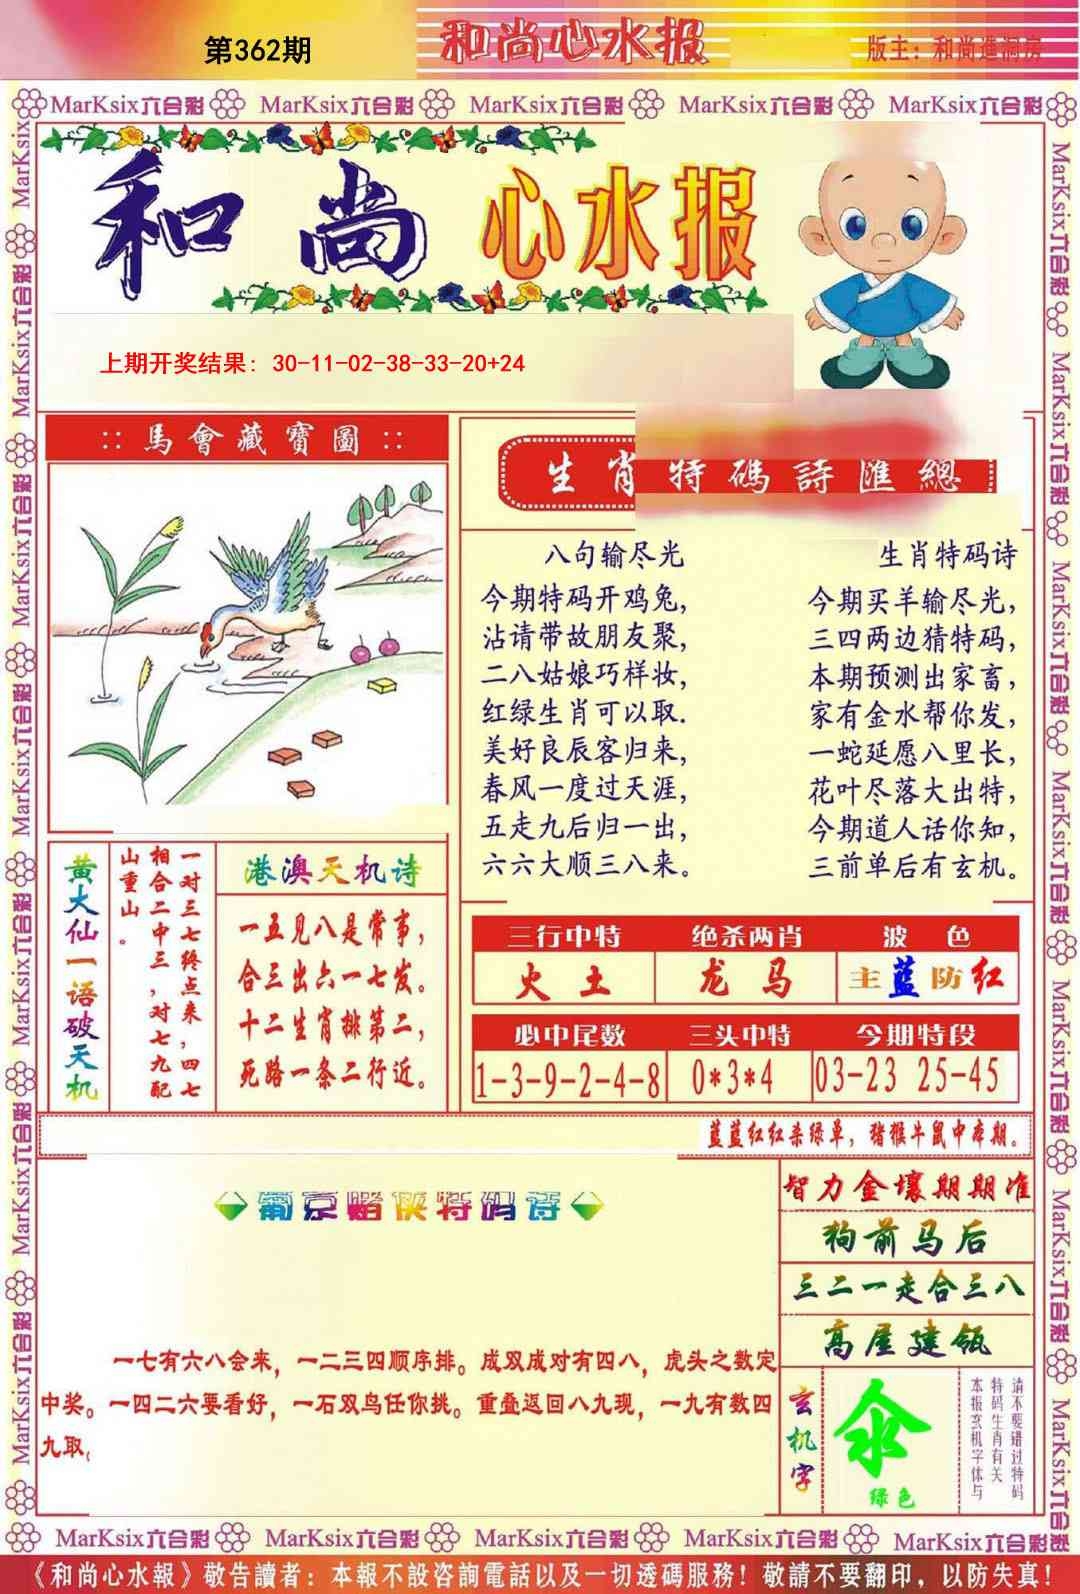 第362期
和尚心水报
版主：和尚進洞房
MarKsix六合彩 MarKsix六合彩 MarKsix六合彩 MarKsix六合彩 MarKsix六合彩
和尚心水报
上期开奖结果: 30-11-02-38-33-20+24
:: 馬會藏寶圖 ::
生肖特碼詩匯總
八句输尽光
今期特码开鸡兔，
沾请带故朋友聚，
二八姑娘巧样妆，
红绿生肖可以取.
美好良辰客归来，
春风一度过天涯，
五走九后归一出，
六六大顺三八来。
生肖特码诗
今期买羊输尽光，
三四两边猜特码，
本期预测出家畜，
家有金水帮你发，
一蛇延愿八里长，
花叶尽落大出特，
今期道人话你知，
三前单后有玄机。
黄大仙一语破天机
一对三七终点来，四七
相合二中三，对七九配
山重山。
港澳天机诗
一五见八是常事，
合三出六一七发。
十二生肖排第二，
死路一条二行近。
三行中特 绝杀两肖 波色
火土 龙马 主蓝防红
必中尾数 三头中特 今期特段
1-3-9-2-4-8 0*3*4 03-23 25-45
蓝蓝红红杀绿单，猪猴牛鼠中本期。
葡京赌侠特码诗
一七有六八会来，一二三四顺序排。成双成对有四八，虎头之数定
中奖。一四二六要看好，一石双鸟任你挑。重叠返回八九现，一九有数四
九取。
智力金壤期期准
狗前马后
三二一走合三八
高屋建瓴
玄机字
氽
绿色
请不要错过特码
特码生肖有关
本报玄机字体与
MarKsix六合彩 MarKsix六合彩 MarKsix六合彩 MarKsix六合彩 MarKsix六合彩
《和尚心水報》敬告讀者：本報不設咨詢電話以及一切透碼服務！敬請不要翻印，以防失真！